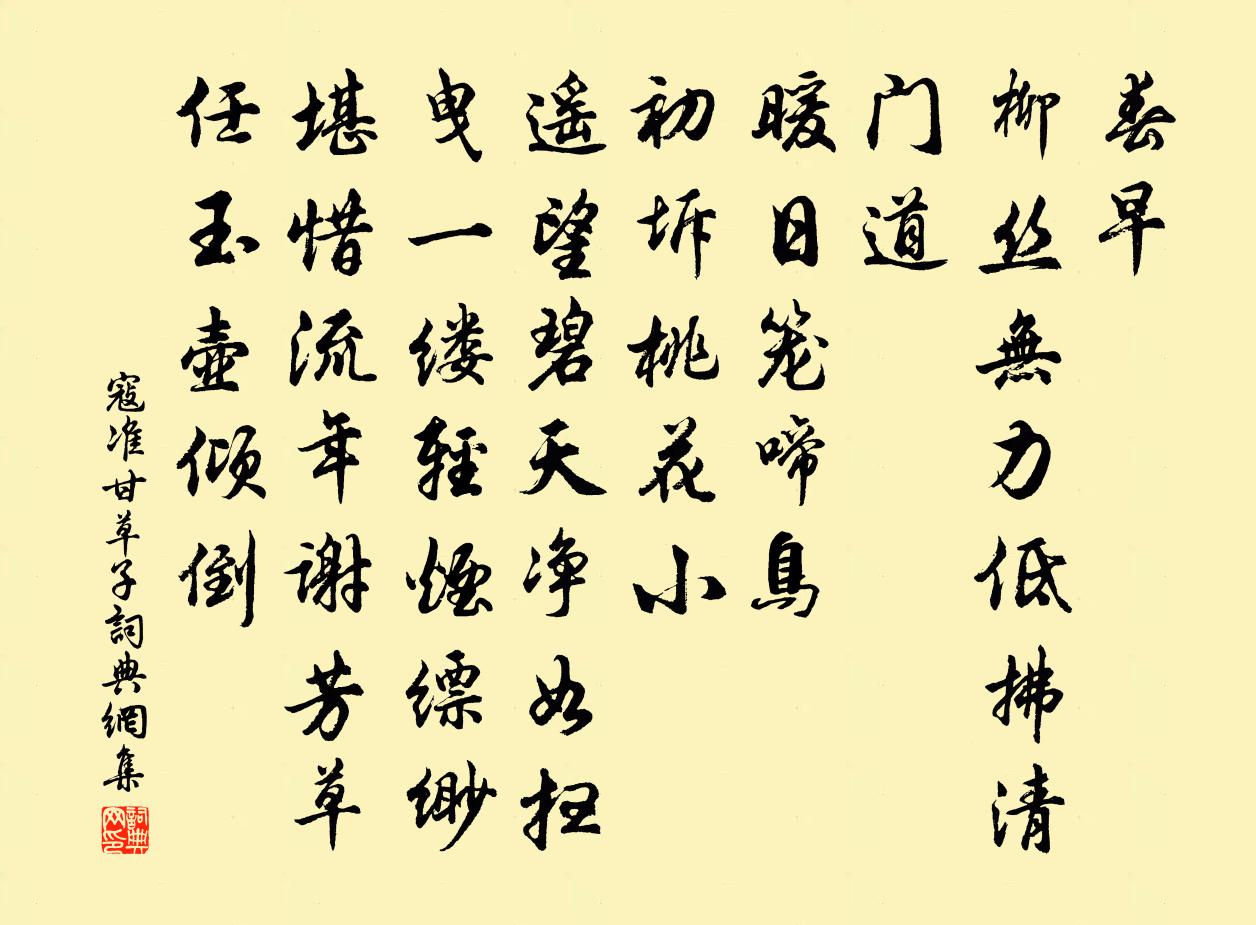 春早
柳丝無力低拂清
门道
暖日笼啼鳥
初坼桃花小
遥望碧天净如扫
曳一缕輕煙缥缈
堪惜流年谢芳草
任玉壶倾倒
寇准甘草子詞典網集
詞典网印